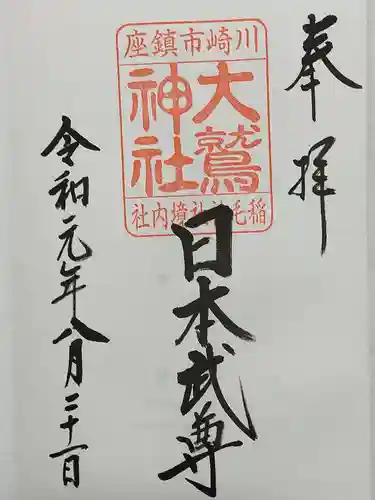 奉拝
川崎市鎮座
大鷲
神社
稲毛神社境内社
日本武尊
令和元年八月二十一日